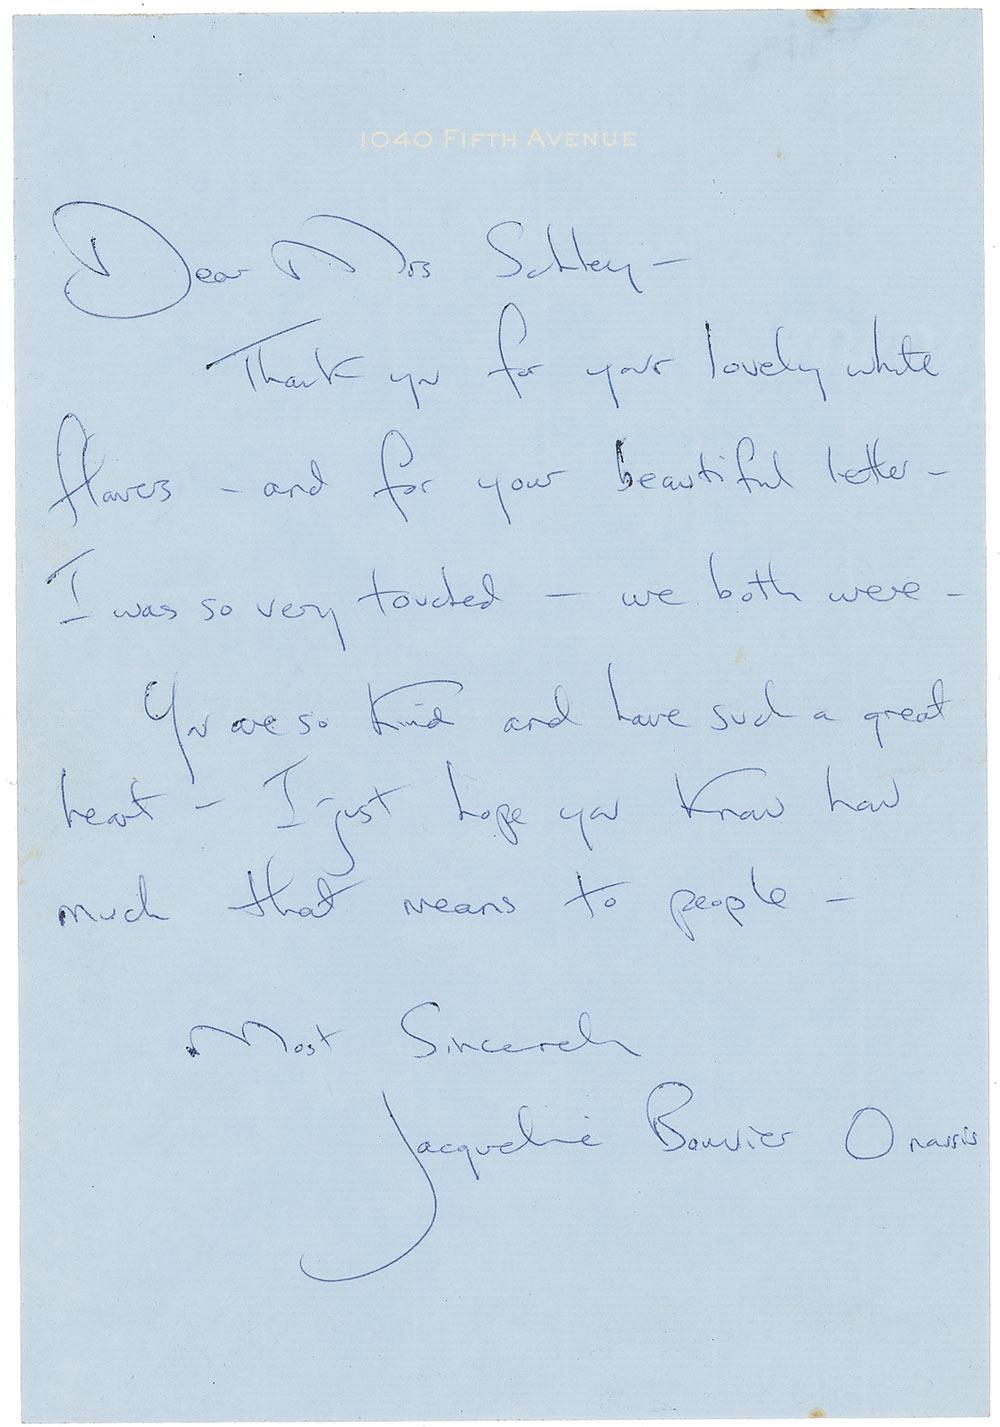 1040 FIFTH AVENUE
Dear Mrs Schley –
Thank you for your lovely white
flowers – and for your beautiful letter –
I was so very touched – we both were –
You are so kind and have such a great
heart – I just hope you know how
much that means to people –
Most Sincerely
Jacqueline Bouvier Onassis